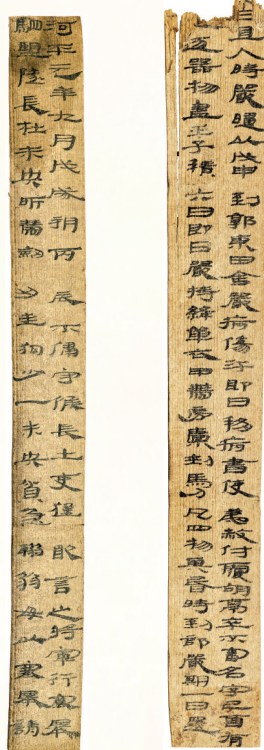 三日食時嚴歸以戊申到郭東田舍嚴病傷汗即日移病書使弟赦付覆胡亭卒不審名字己酉有
盡壬子積六日即日嚴持絳單衣甲帶旁橐刺馬刀凡四物其昏時到部嚴期一日還
河平元年九月戊戌朔丙辰不侵守候長士吏猛敢言之將軍行塞舉
駟望隧長杜未央所帶劍刃生狗少一未央貧急軟弱毋以塞舉請